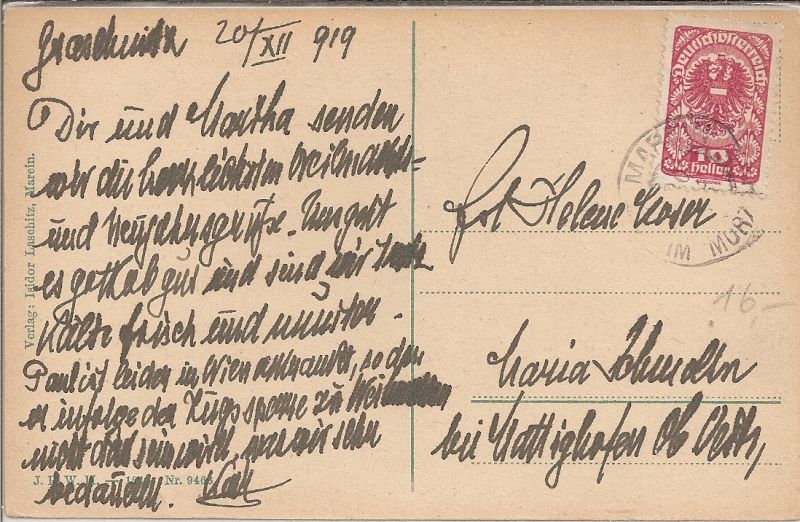 Graschnitz 20/XII 919
Dir und Martha senden
wir die herzlichsten Weihnachts-
und Neujahrsgrüße. Uns geht
es gottlob gut und sind wir trotz
Kälte frisch und munter.
Paul ist leider in Wien erkrankt, so daß
er infolge der Zugssperre zu Weihnachten
nicht da sein wird, was wir sehr
bedauern. Karl
Frl. Helene Moser
Maria Schmolln
bei Mattighofen Ob. Oestr,
Deutschösterreich
10
Heller
MAR
IM MÜRZ
16-
Verlag: Isidor Laschitz, Marein.
J. P. W. II. Nr. 9466